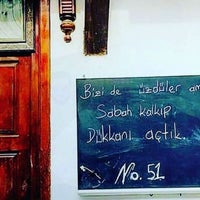 Bizi de üzdüler am
Sabah kalkıp
Dükkanı açtık.
No. 51